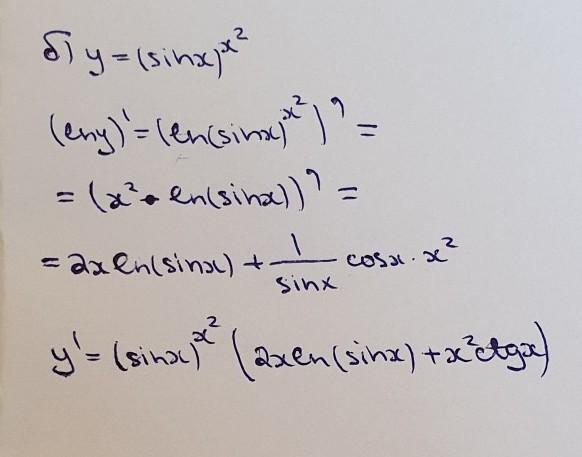 б) y = (sinx)^x²
(lny)' = (ln(sinx)^x²)' =
= (x² • ln(sinx))' =
= 2x ln(sinx) + 1/sinx cosx · x²
y' = (sinx)^x² (2x ln(sinx) + x²ctgx)